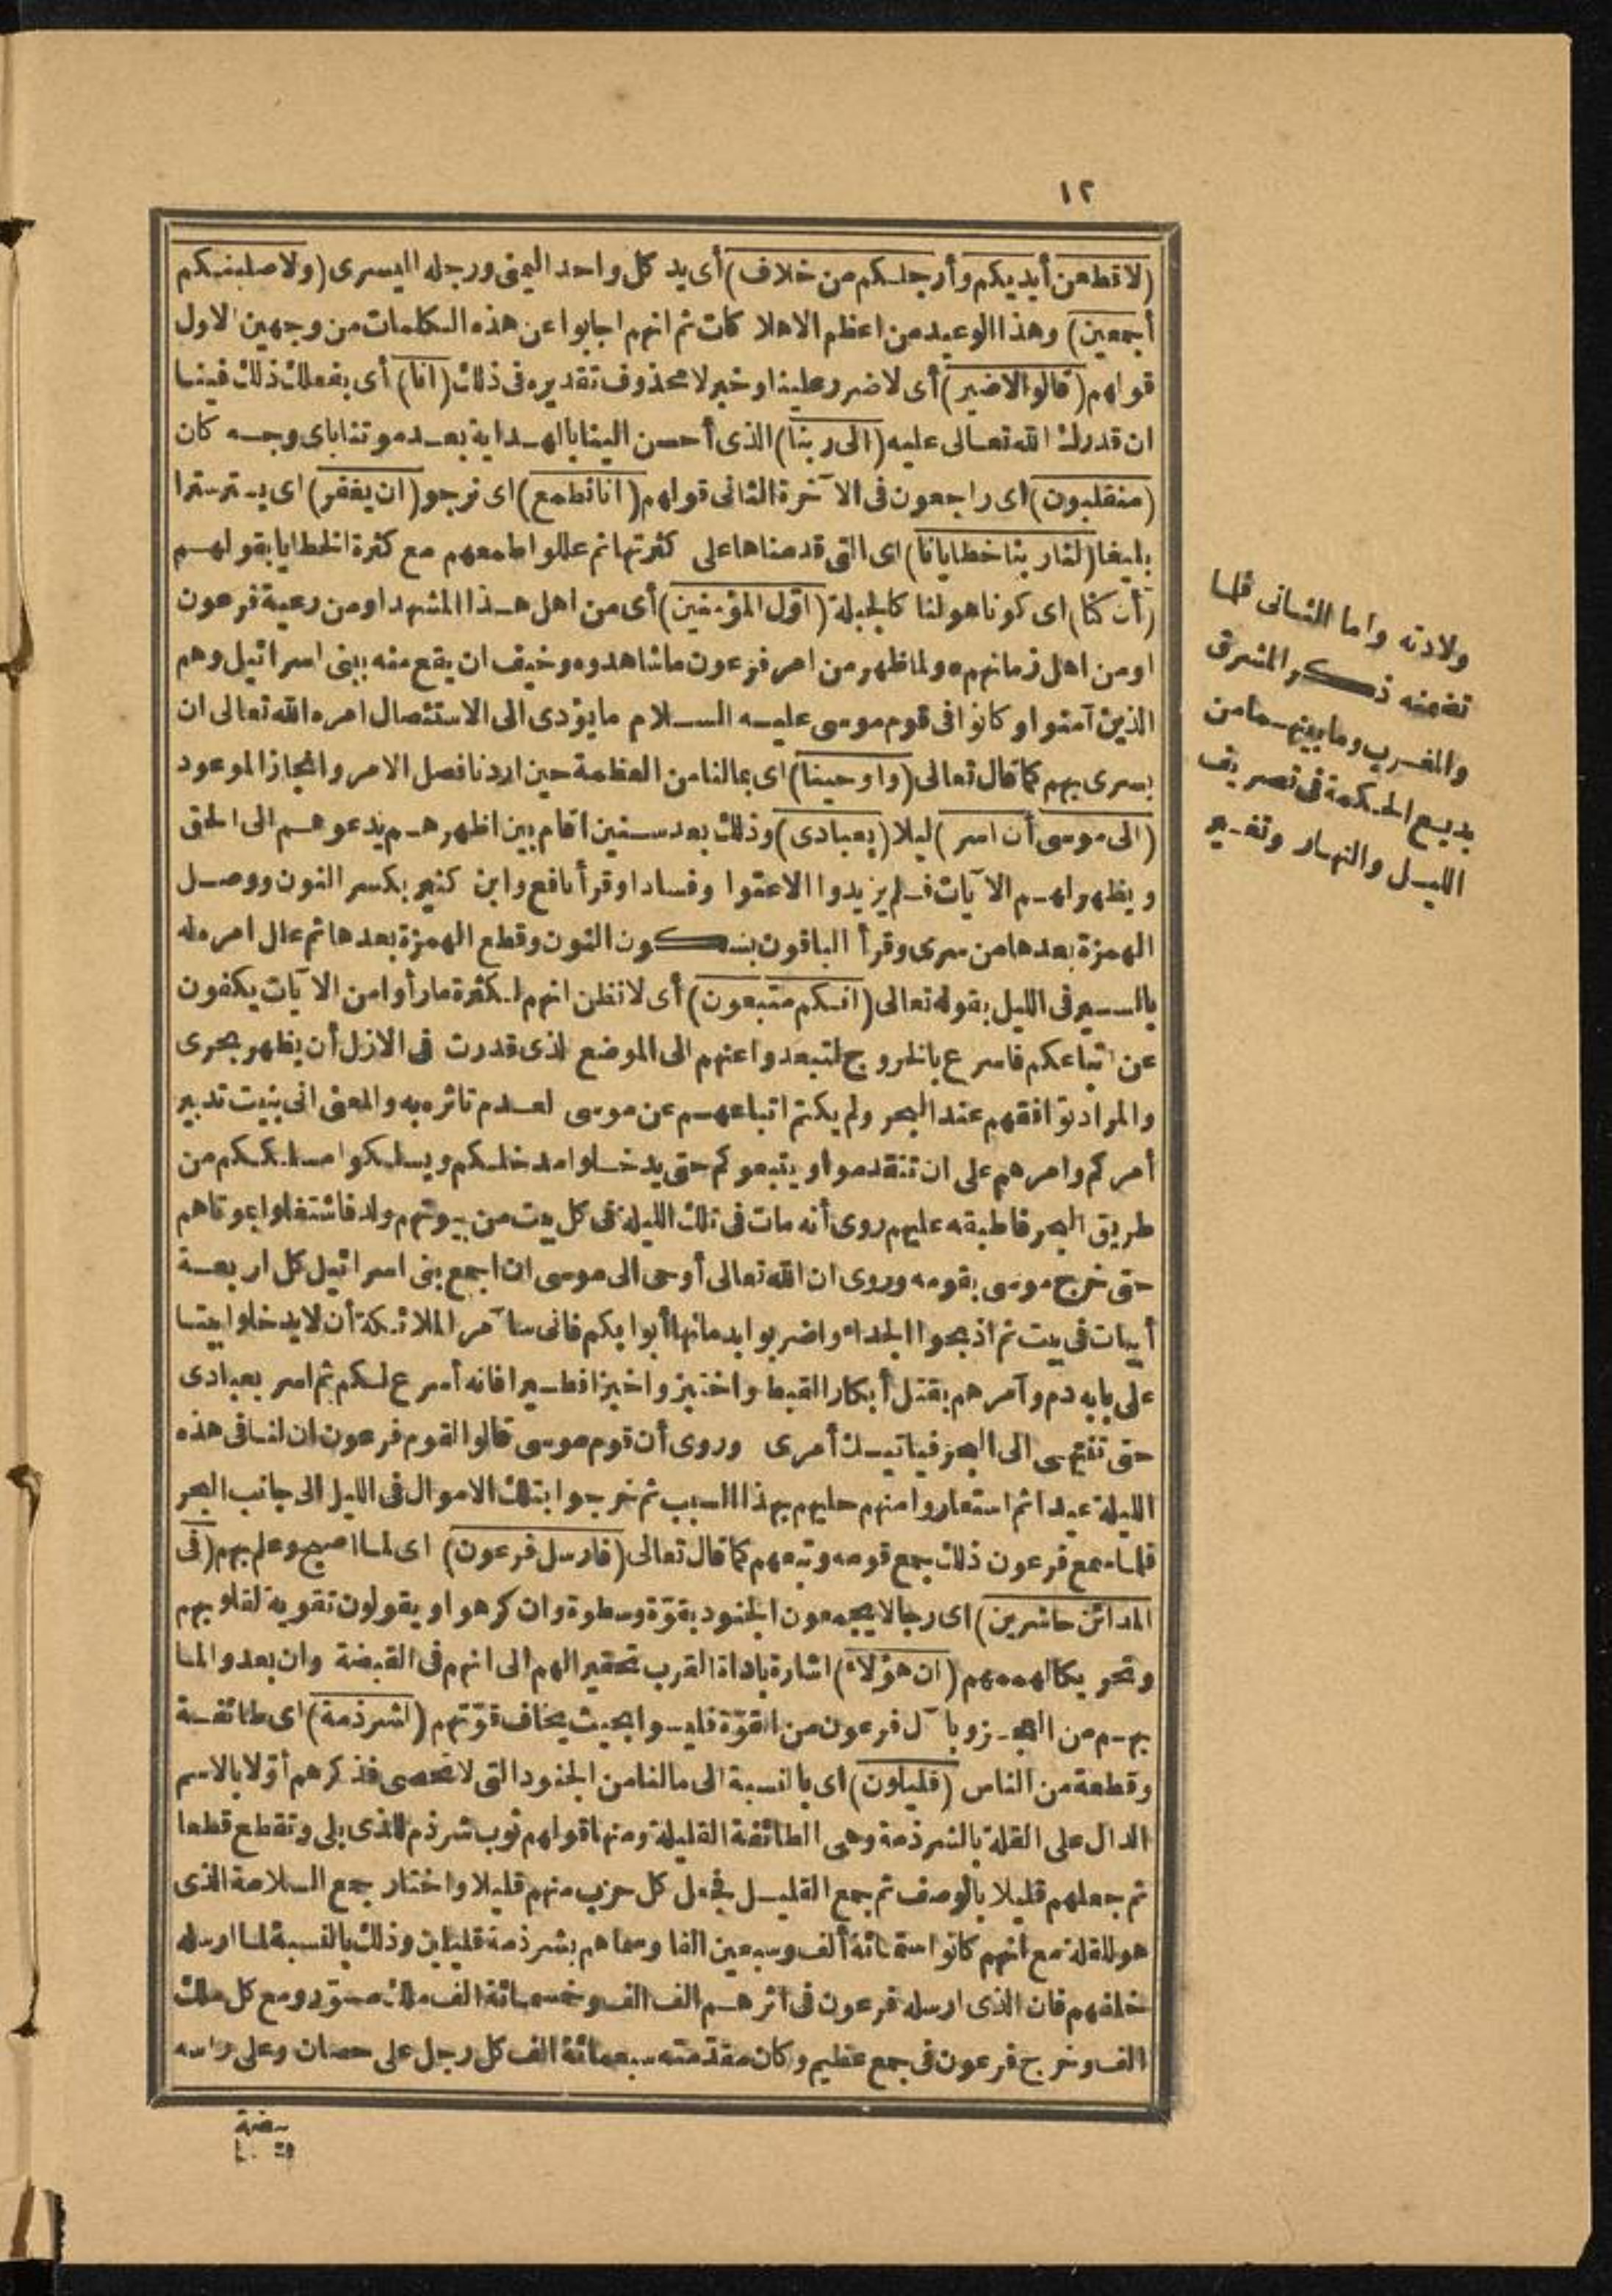 ١٢
(لاقطعن أيديكم وأرجلكم من خلاف) أى يد كل واحد اليمنى ورجله اليسرى (ولاصلبنكم
أجمعين) وهذا الوعيد من اعظم الاهلا كات ثم انهم اجابوا عن هذه الكلمات من وجهين الاول
قولهم (قالوا لاضير) أى لاضرر علينا وخبر لا محذوف تقديره فى ذلك (انا) أى بفعلك ذلك فينا
ان قدرك الله تعالى عليه (الى ربنا) الذى أحسن الينا بالهداية بعد موتنا باى وجه كان
(منقلبون) اى راجعون فى الآخرة الثانى قولهم (انا نطمع) اى نرجو (ان يغفر) اى يستر سترا
بليغا (لنا ربنا خطايانا) اى التى قدمناها على كثرتها ثم عللوا طمعهم مع كثرة الخطايا بقولهم
(أن كنا) اى كونا هو لنا كالجبلة (اوّل المؤمنين) أى من اهل هذا المشهد او من رعية فرعون
او من اهل زمانهم * ولما ظهر من امر فرعون ما شاهدوه وخيف ان يقع منه ببنى اسرائيل وهم
الذين آمنوا وكانوا فى قوم موسى عليه السلام ما يؤدى الى الاستئصال امره الله تعالى ان
يسرى بهم كما قال تعالى (واوحينا) اى بما لنا من العظمة حين اردنا فصل الامر وانجاز الموعود
(الى موسى أن اسر) ليلا (بعبادى) وذلك بعد سنين اقام بين اظهرهم يدعوهم الى الحق
ويظهر لهم الآيات فلم يزيدوا الاعتوا وفسادا وقرأ نافع وابن كثير بكسر النون ووصل
الهمزة بعدها من سرى وقرأ الباقون بسكون النون وقطع الهمزة بعدها ثم علل امره له
بالسير فى الليل بقوله تعالى (انكم متبعون) أى لا تظن انهم لكثرة ما رأوا من الآيات يكفون
عن اتباعكم فاسرع بالخروج لتبعدوا عنهم الى الموضع الذى قدرت فى الازل أن يظهر مجدى
والمراد توافقهم عند البحر ولم يكتم اتباعهم عن موسى لعدم تاثره به والمعنى انى بنيت تدبير
أمركم وامرهم على ان تتقدموا ويتبعوكم حتى يدخلوا مدخلكم ويسلكوا مسلككم من
طريق البحر فاطبقه عليهم روى أنه مات فى تلك الليلة فى كل بيت من بيوتهم ولد فاشتغلوا بموتاهم
حتى خرج موسى بقومه وروى ان الله تعالى أوحى الى موسى ان اجمع بنى اسرائيل كل اربعة
أبيات فى بيت ثم اذبحوا الجداء واضربوا بدمائها أبوابكم فانى سآمر الملائكة أن لا يدخلوا بيتا
على بابه دم وآمرهم بقتل أبكار القبط واختبزوا خبزا فطيرا فانه أسرع لكم ثم اسر بعبادى
حتى تنتهى الى البحر فياتيك أمرى وروى أن قوم موسى قالوا لقوم فرعون ان لنا فى هذه
الليلة عيدا ثم استعاروا منهم حليهم بهذا السبب ثم خرجوا بتلك الاموال فى الليل الى جانب البحر
فلما سمع فرعون ذلك جمع قومه وتبعهم كما قال تعالى (فارسل فرعون) اى لما اصبح وعلم بهم (فى
المدائن حاشرين) اى رجالا يجمعون الجنود بقوّة وسطوة وان كرهوا ويقولون تقوية لقلوبهم
وتحريكا لهممهم (ان هؤلاء) اشارة باداة القرب تحقيرا لهم الى انهم فى القبضة وان بعدوا لما
بهم من العجز وبآل فرعون من القوّة فليسوا بحيث يخاف قوّتهم (لشرذمة) اى طائفة
وقطعة من الناس (قليلون) اى بالنسبة الى ما لنا من الجنود التى لا تحصى فذكرهم أوّلا بالاسم
الدال على القلة بالشرذمة وهى الطائفة القليلة ومنها قولهم ثوب شراذم للذى بلى وتقطع قطعا
ثم جعلهم قليلا بالوصف ثم جمع القليل فجعل كل حزب منهم قليلا واختار جمع السلامة الذى
هو للقلة مع انهم كانوا ستمائة ألف وسبعين الفا وسماهم بشرذمة قليلين وذلك بالنسبة لما ارسله
خلفهم فان الذى ارسله فرعون فى اثرهم الف الف وخمسمائة الف ملك مسوّر ومع كل ملك
الف وخرج فرعون فى جمع عظيم وكان مقدّمته سبعمائة الف كل رجل على حصان وعلى راسه
بيضة
ولادته واما الثانى فلما
تضمنه ذكر المشرق
والمغرب وما بينهما من
بديع الحكمة فى تصريف
الليل والنهار وتغير